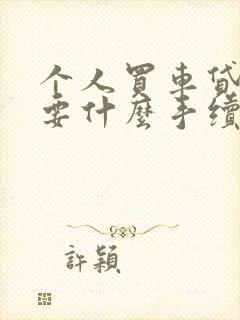 个人買車貸
要什麼手續
許穎